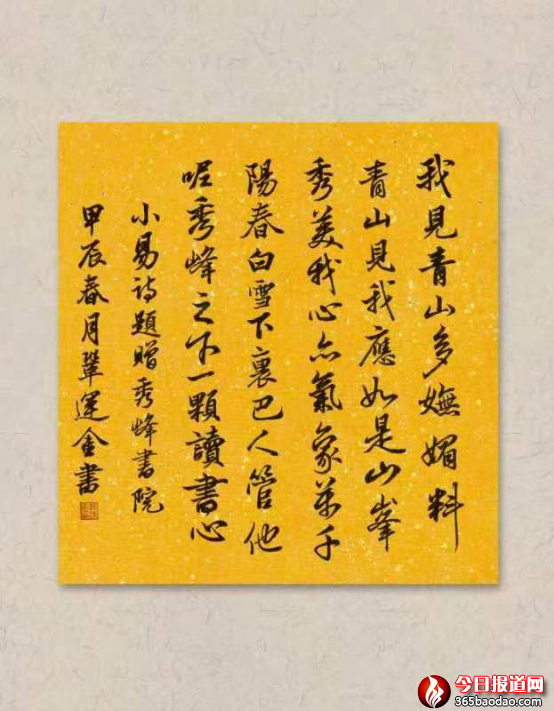 我見青山多嫵媚料
青山見我應如是山峯
秀美我心亦氣象萬千
陽春白雪下裏巴人管他
呢秀峰之下一顆讀書心
小易詩題贈秀峰書院
甲辰春月鞏運金書
今日报道网
365baodao.com